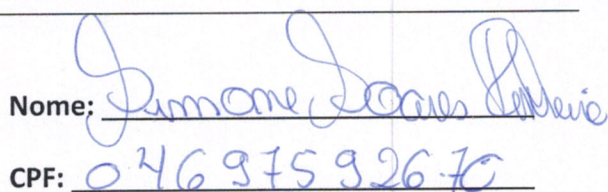 Nome: Simone Soares Ferreira
CPF: 04697592670